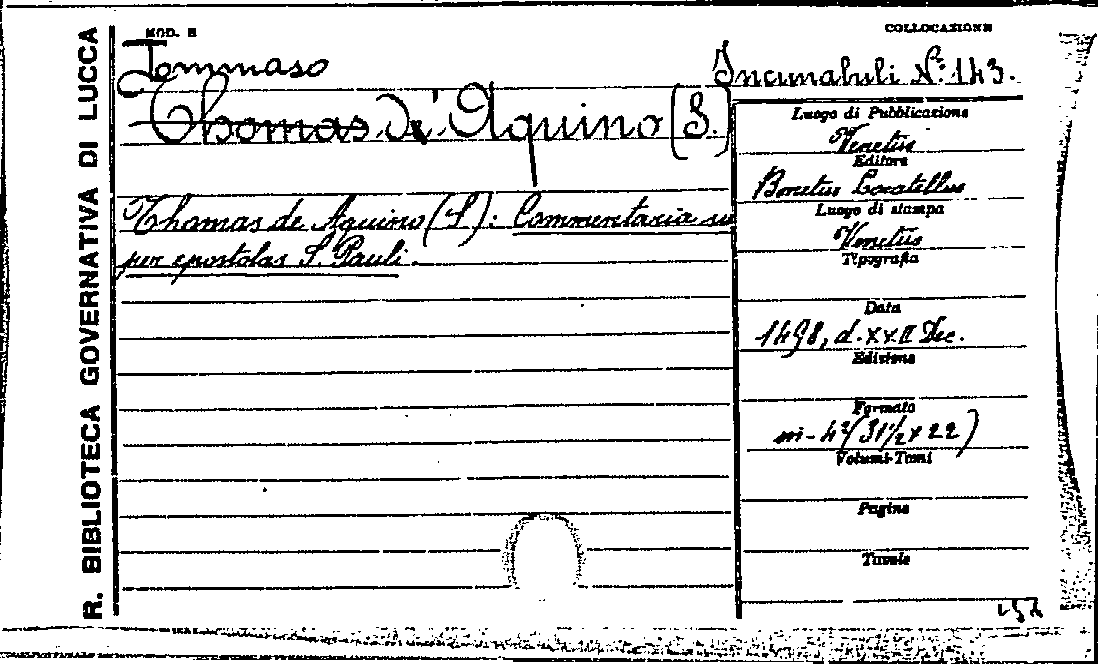 R. BIBLIOTECA GOVERNATIVA DI LUCCA
MOD. E
COLLOCAZIONE
Tommaso
Incunabuli No. 143.
Thomas d'Aquino (S.)
Thomas de Aquino (S.): Commentaria su
per epostolas S. Pauli.
Luogo di Pubblicazione
Venetus
Editore
Bonetus Locatellus
Luogo di stampa
Venetus
Tipografia
Data
1498, d. XXII Dec.
Edizione
Formato
in-4° (31½ x 22)
Volumi-Tomi
Pagine
Tavole